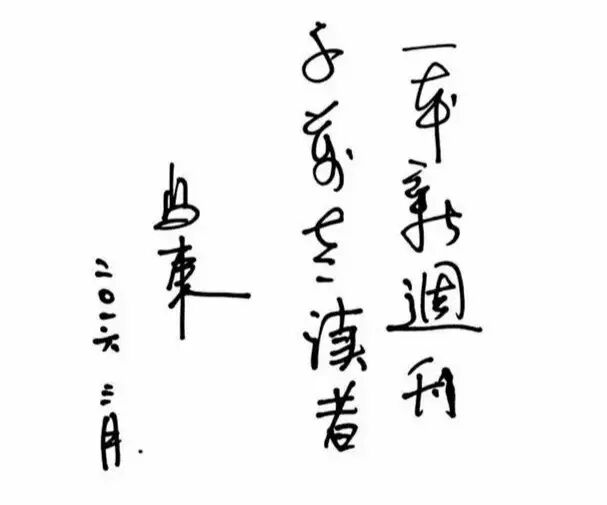 一本新週刊
千萬老讀者
馬東
二〇一六 二月